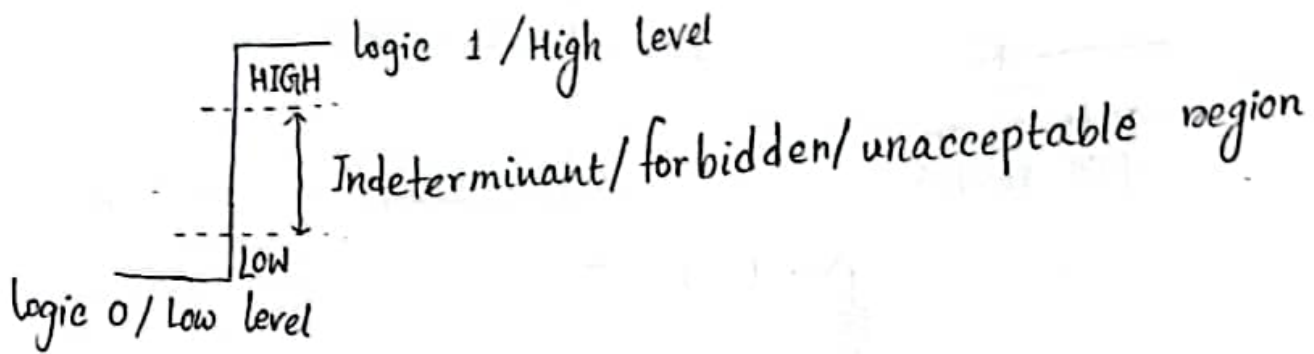 logic 1/High level
HIGH
Indeterminant/forbidden/unacceptable region
LOW
logic 0/Low level